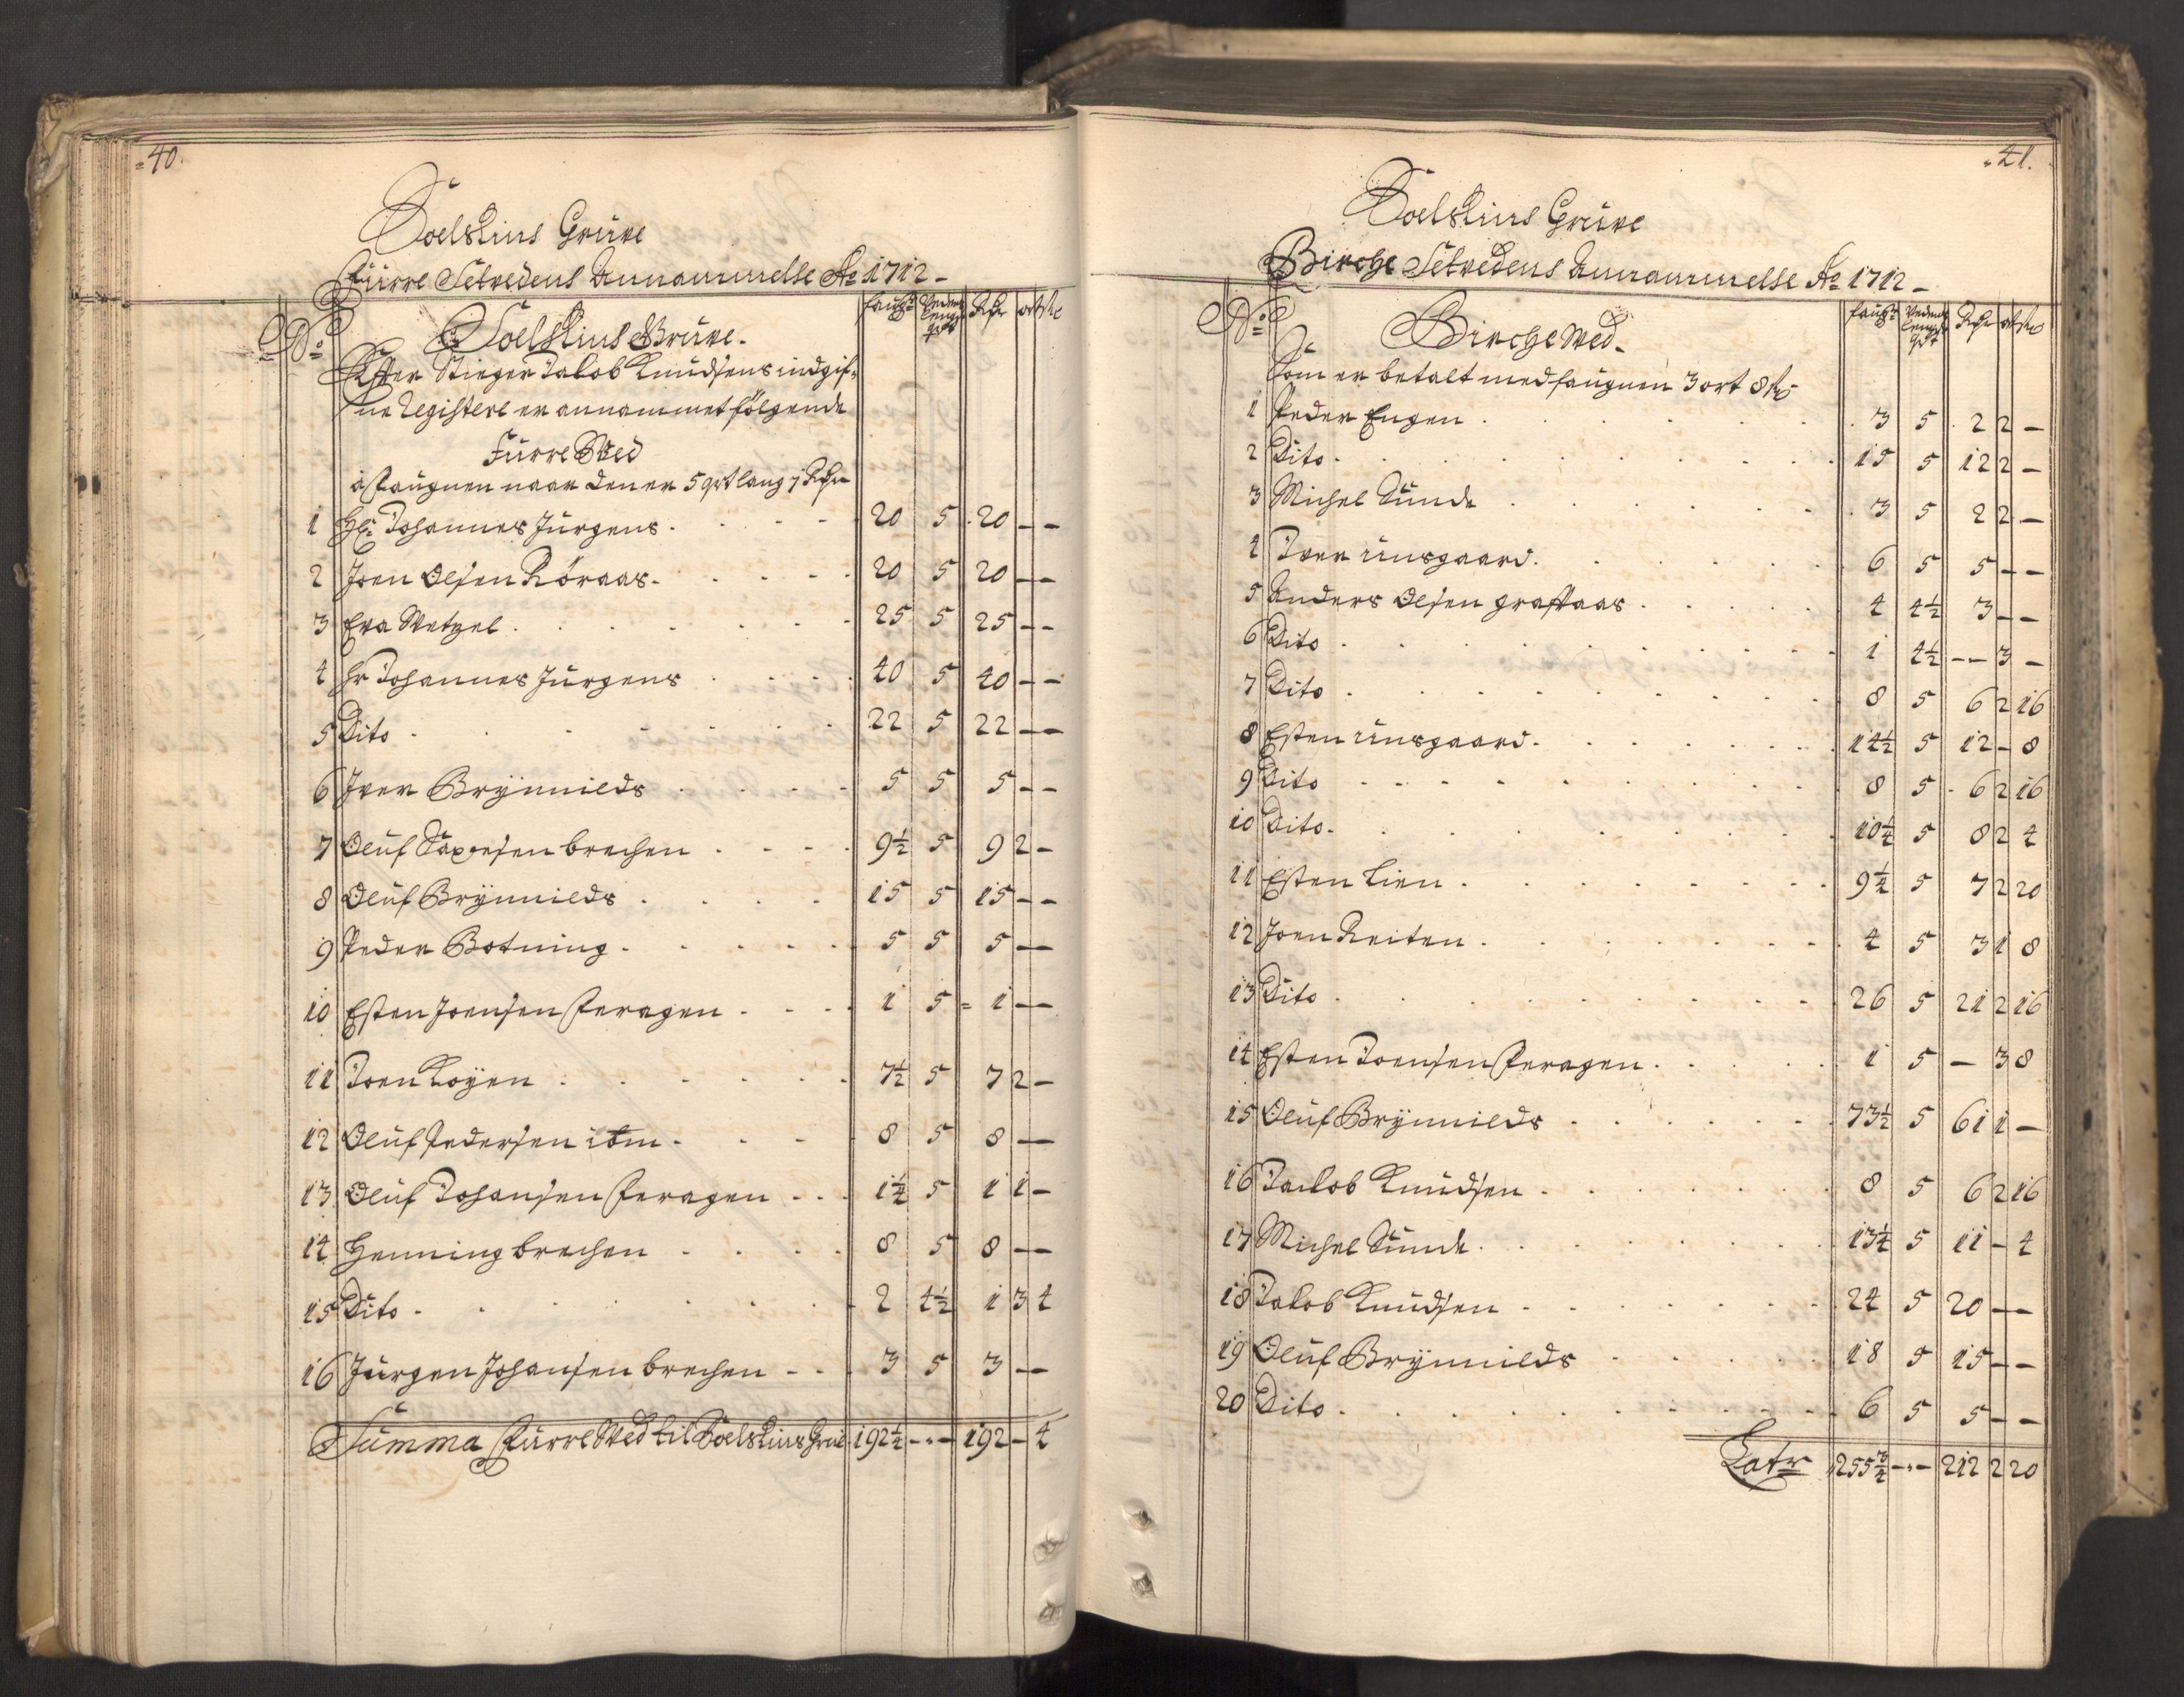 40.
Soelskins Grüve
Fürre Setvedens Annammelse Ao 1712
No Soelskins Grüve. faugr Vedens lengde qrt Rdr ort sk
Effter Stieger Jakob Knudsens indgif-
ne Registere er annammet fölgende
Fürre Wed
à faugnen naar den er 5 qrt lang 1 Rdr
1 Hr. Johannes Jürgens 20 5 20 - -
2 Joen Olsen Röraas 20 5 20 - -
3 Eva Wetzel 25 5 25 - -
4 Hr Johannes Jürgens 40 5 40 - -
5 Dito 22 5 22 - -
6 Iver Brÿnnilds 5 5 5 - -
7 Oluf brechen 9½ 5 9 2 -
8 Oluf Brÿnnilds 15 5 15 - -
9 Peder Botning 5 5 5 - -
10 Esten Joensen Feragen 1 5 1 - -
11 Joen Koÿen 7½ 5 7 2 -
12 Oluf Pedersen ibm 8 5 8 - -
13 Oluf Johansen Feragen 1¼ 5 1 1 -
14 Henning brechen 8 5 8 - -
15 Dito 2 4½ 1 3 4
16 Jürgen Johansen brechen 3 5 3 - -
Summa Fürre Wed til Soelskins Grüv 192¼ - 192 - 4
41.
Soelskins Grüve
Birche Setvedens Annammelse Ao 1712
No Birche Wed faugr Vedens lengde qrt Rdr ort sk
Som er betalt med faugnen 3 ort 8 sk
1 Peder Engen 3 5 2 2 -
2 Dito 15 5 12 2 -
3 Michel Sunde 3 5 2 2 -
4 Iver Unsgaard 6 5 5 - -
5 Anders Olsen graffaas 4 4½ 3 - -
6 Dito 1 4½ - 3 -
7 Dito 8 5 6 2 16
8 Esten Unsgaard 14½ 5 12 - 8
9 Dito 8 5 6 2 16
10 Dito 10¼ 5 8 2 4
11 Esten Lien 9¼ 5 7 2 20
12 Joen Reiten 4 5 3 1 8
13 Dito 26 5 21 2 16
14 Esten Joensen Feragen 1 5 - 3 8
15 Oluf Brÿnnilds 73½ 5 61 1 -
16 Jacob Knudsen 8 5 6 2 16
17 Michel Sunde 13¼ 5 11 - 4
18 Jakob Knudsen 24 5 20 - -
19 Oluf Brÿnnilds 18 5 15 - -
20 Dito 6 5 5 - -
Latr 255¾ - 212 2 20